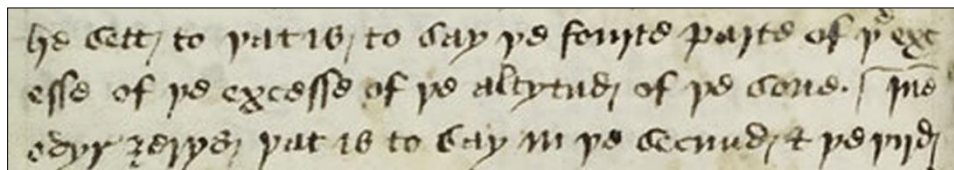 he sett to þat is to say þe fourte parte of þe exc
esse of þe excesse of þe altytud of þe sone.
odyr ȝerys þat is to say in þe secund & þe iijd